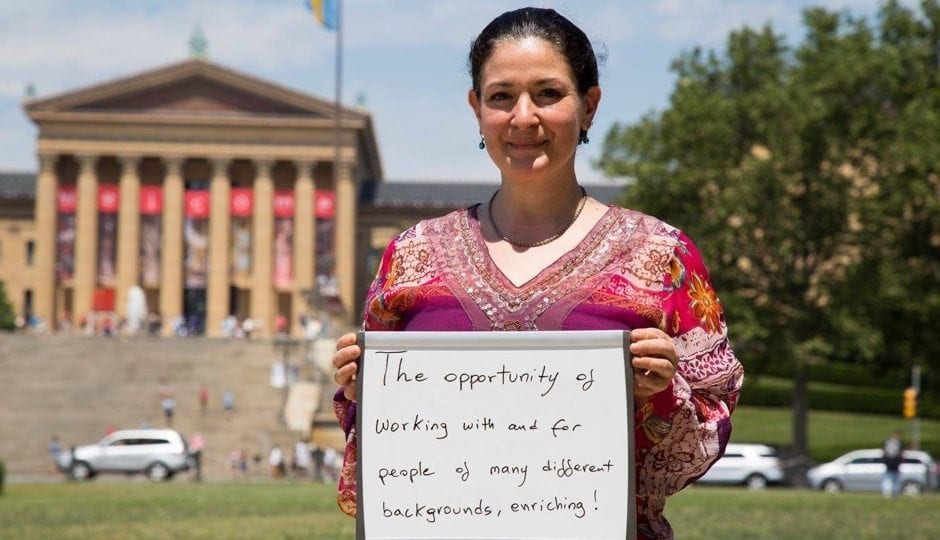 The opportunity of
working with and for
people of many different
backgrounds, enriching!